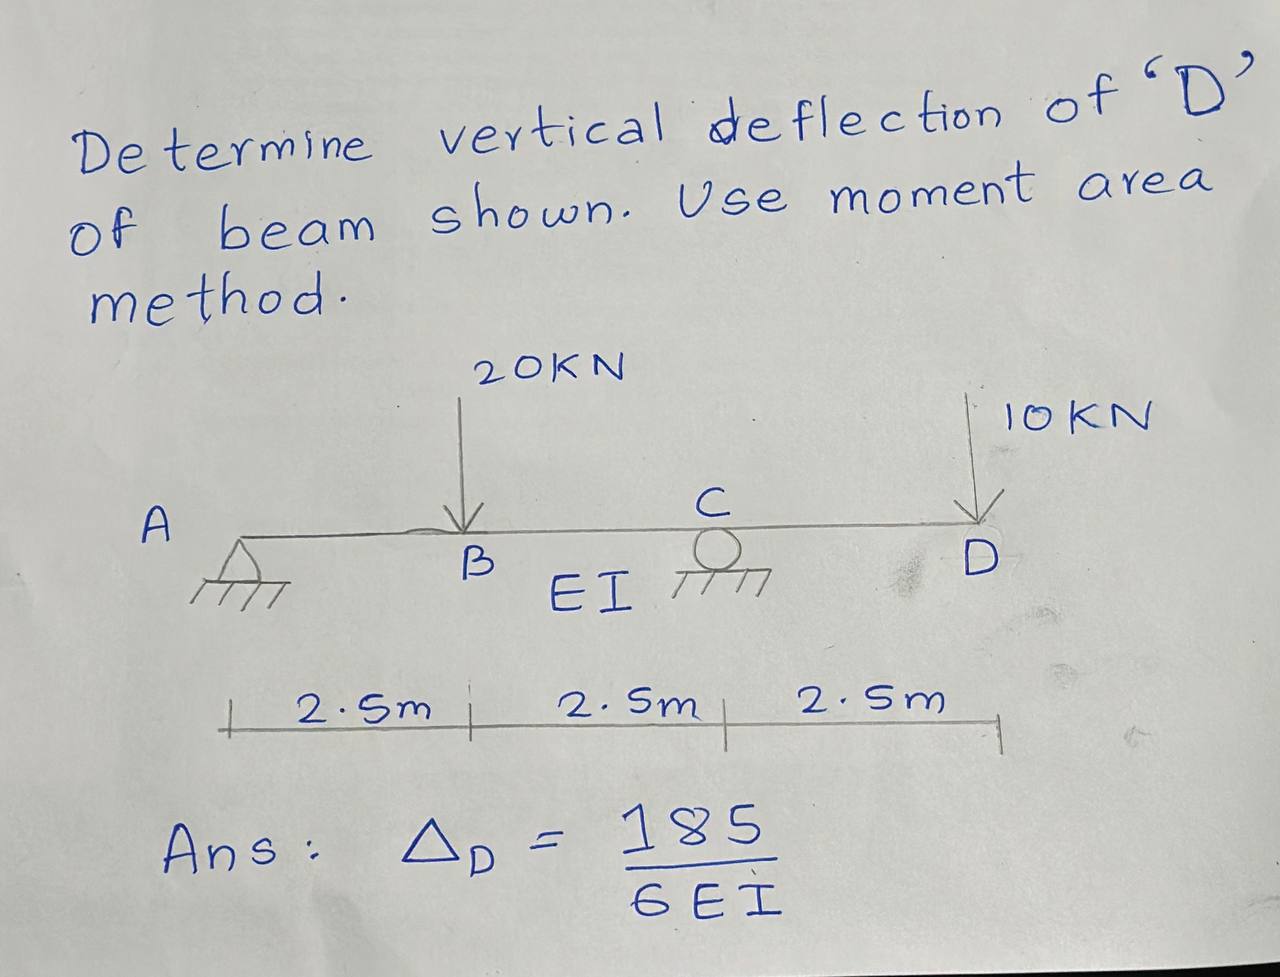 Determine vertical deflection of ‘D’
of beam shown. Use moment area
method.
20KN
10KN
A
B
C
D
EI
2.5m 2.5m 2.5m
Ans: ΔD = 185
6EI